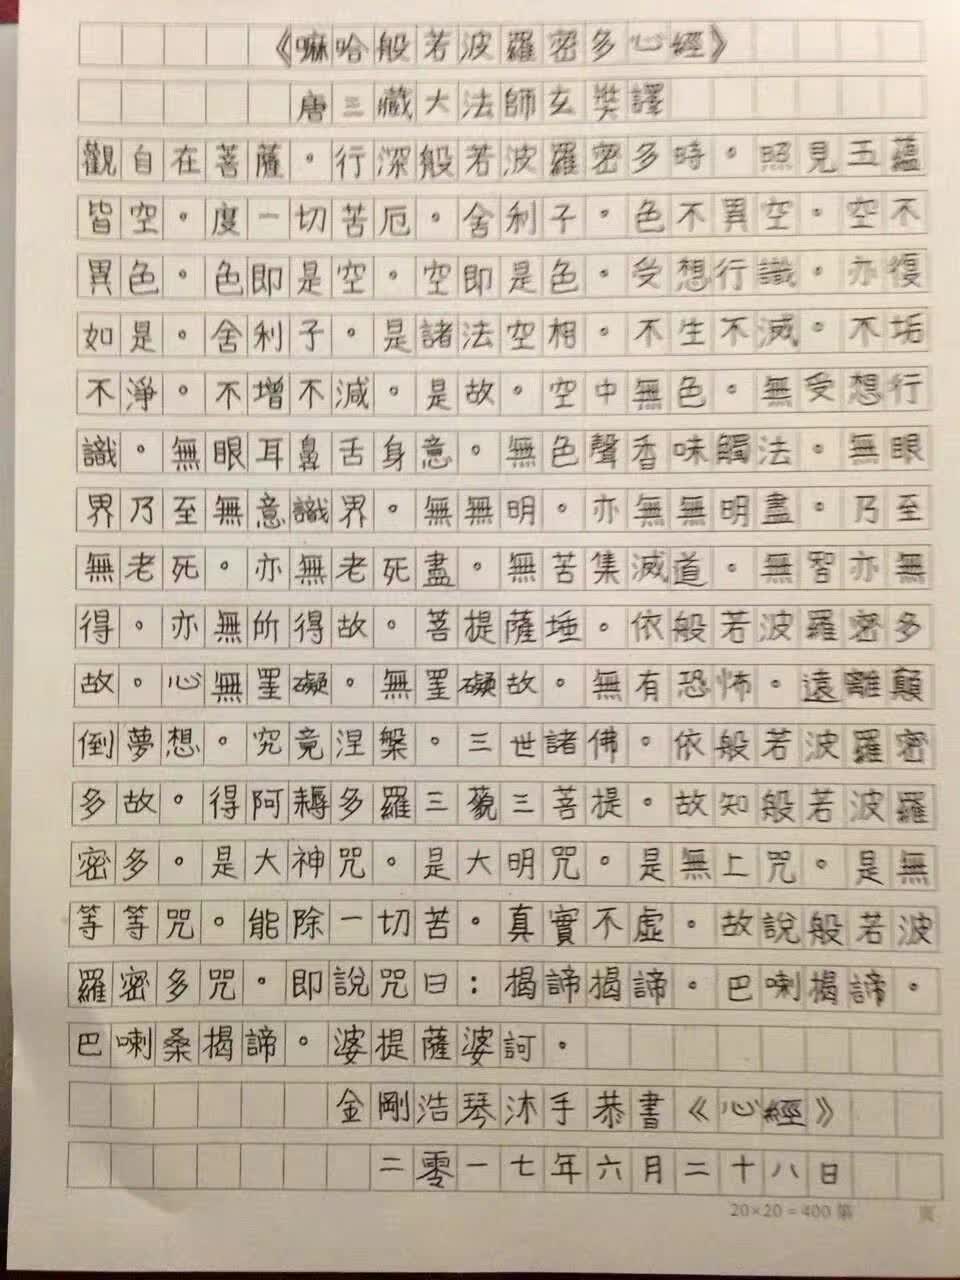 《嘛哈般若波羅密多心經》
唐三藏大法師玄奘譯
觀自在菩薩。行深般若波羅密多時。照見五蘊
皆空。度一切苦厄。舍利子。色不異空。空不
異色。色即是空。空即是色。受想行識。亦復
如是。舍利子。是諸法空相。不生不滅。不垢
不淨。不增不減。是故。空中無色。無受想行
識。無眼耳鼻舌身意。無色聲香味觸法。無眼
界乃至無意識界。無無明。亦無無明盡。乃至
無老死。亦無老死盡。無苦集滅道。無智亦無
得。亦無所得故。菩提薩埵。依般若波羅密多
故。心無罣礙。無罣礙故。無有恐怖。遠離顛
倒夢想。究竟涅槃。三世諸佛。依般若波羅密
多故。得阿耨多羅三藐三菩提。故知般若波羅
密多。是大神咒。是大明咒。是無上咒。是無
等等咒。能除一切苦。真實不虛。故說般若波
羅密多咒。即說咒曰:揭諦揭諦。巴喇揭諦。
巴喇桑揭諦。婆提薩婆訶。
金剛浩琴沐手恭書《心經》
二零一七年六月二十八日
20×20=400 第 頁